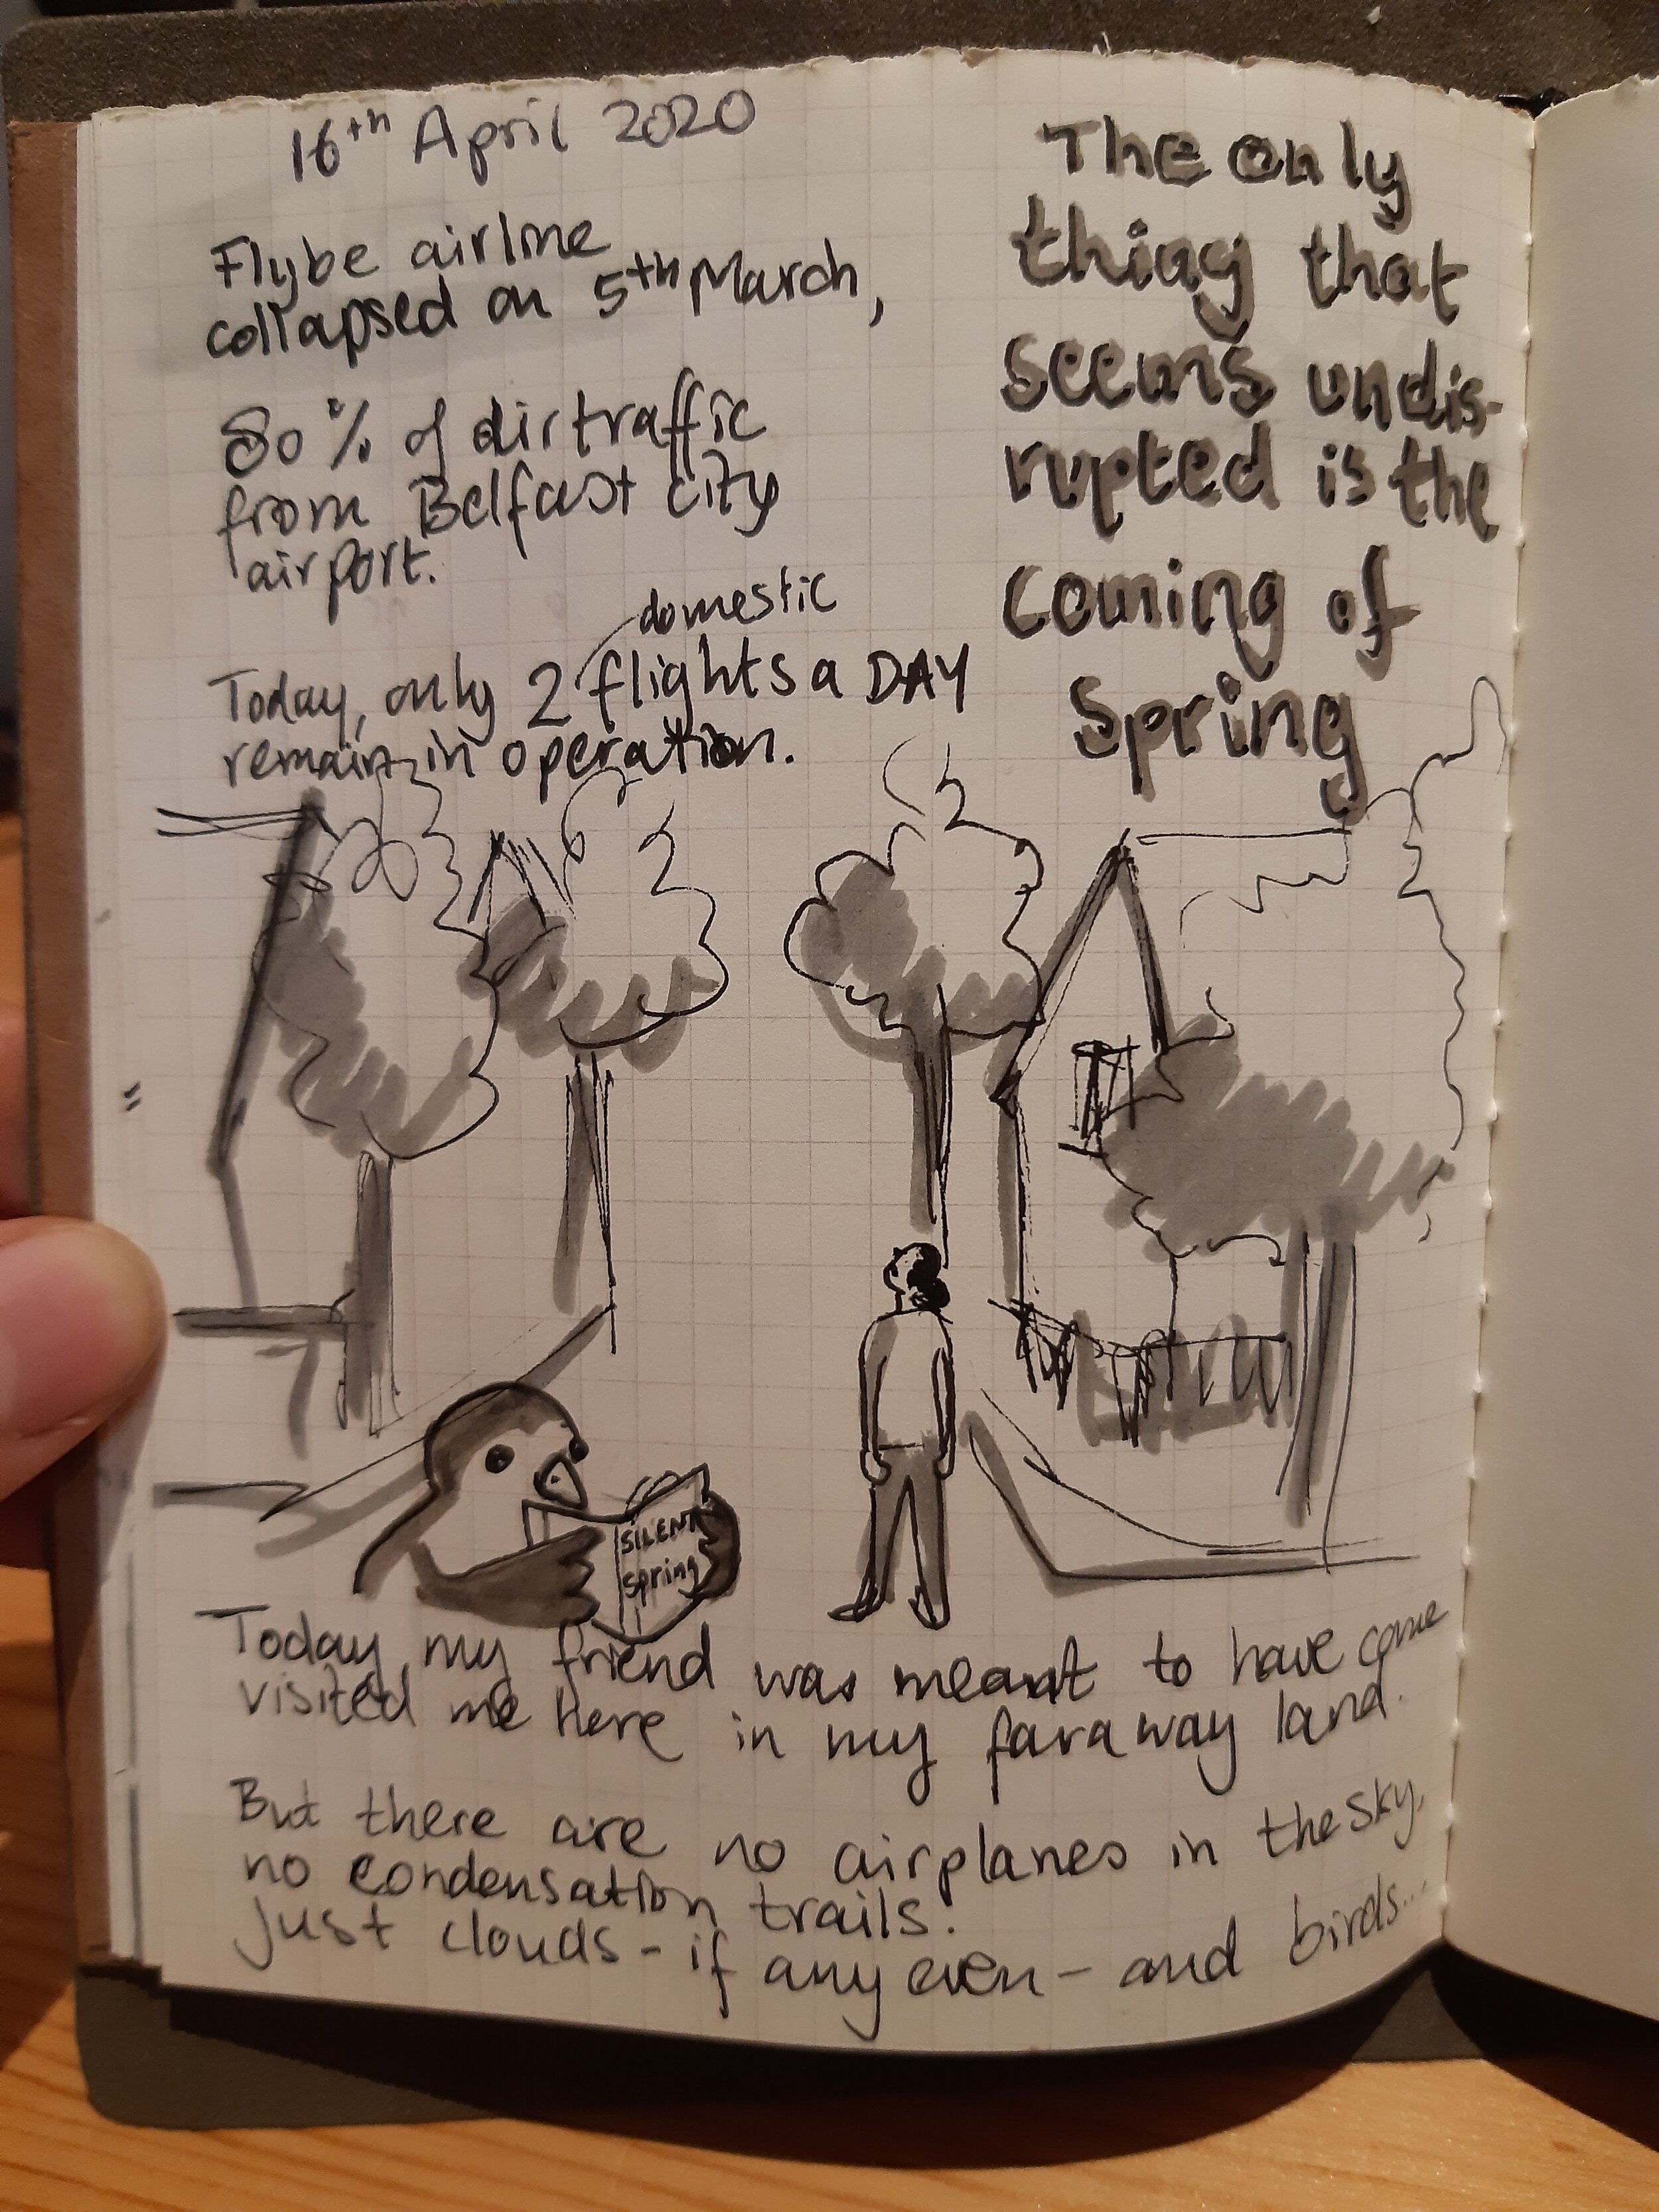 16th April 2020
Flybe airline
collapsed on 5th March,
80% of airtraffic
from Belfast city
airport.
domestic
Today, only 2 flights a DAY
remain in operation.
The only
thing that
seems undis-
rupted is the
coming of
Spring
SILENT
Spring
Today my friend was meant to have come
visited me here in my faraway land.
But there are no airplanes in the sky,
no condensation trails.
Just clouds - if any even - and birds...